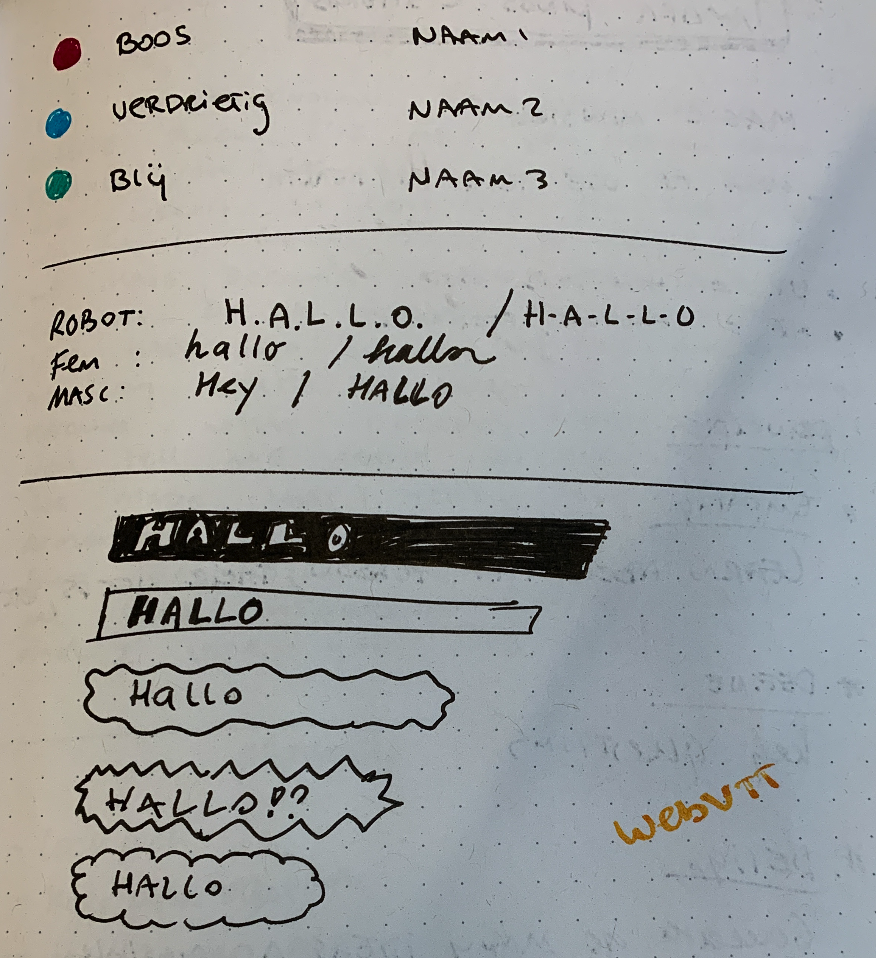 BOOS NAAM 1
VERDRIETIG NAAM 2
BLIJ NAAM 3
ROBOT: H.A.L.L.O. / H-A-L-L-O
Fem : hallo / hallo
MASC: Hey / HALLO
HALLO
HALLO
Hallo
HALLO!?
HALLO
WebVTT